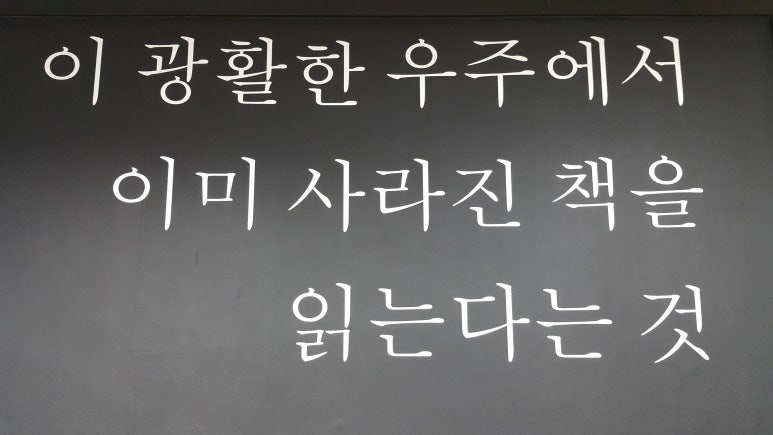 이 광활한 우주에서
이미 사라진 책을
읽는다는 것